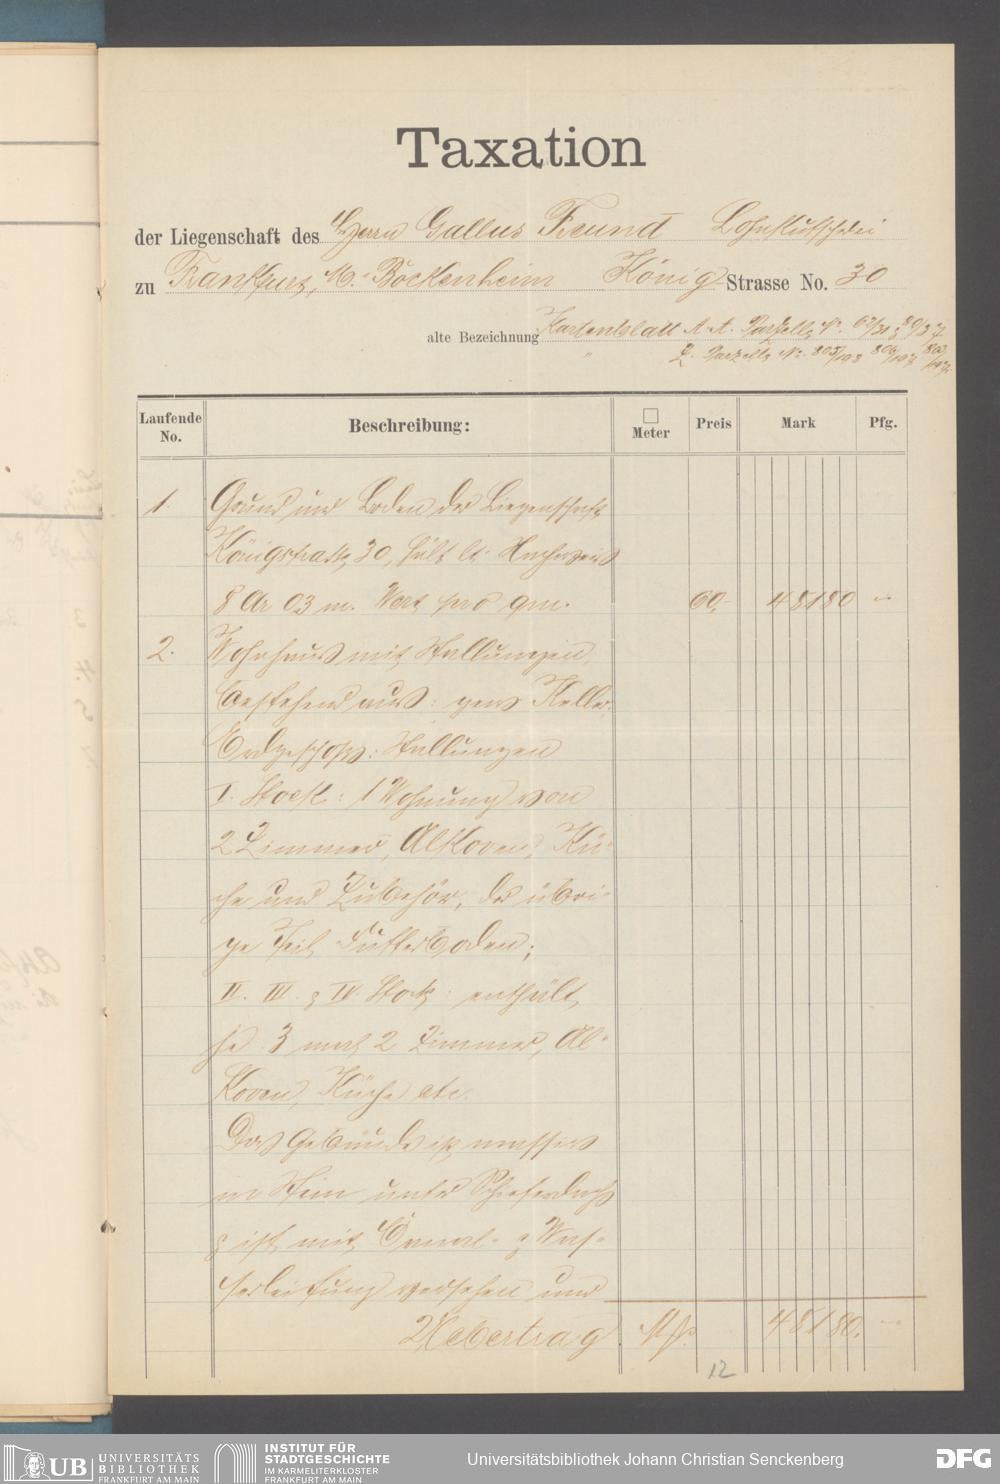 Taxation
der Liegenschaft des Herrn Gallus Freund Lohnkutscherei
zu Frankfurt, M.-Bockenheim König Strasse No. 30
alte Bezeichnung Kartenblatt A. A. Parzelle N°.
" Parzelle N°. 805/193
Laufende No. Beschreibung: □ Meter Preis Mark Pfg.
1. Grund und Boden der Liegenschaft
Königstraße 30, hält lt. Nachweis
8 Ar 03 m. Wert pro qm. 60,- 48180 -
2. Wohnhaus mit Stallungen,
bestehend aus: ganz Keller,
Erdgeschoß: Stallungen
I. Stock: 1 Wohnung von
2 Zimmer, Alkoven, Kü-
che und Zubehör, der übri-
ge Teil Futterboden;
II. III. & IV. Stock: enthält
je 3 mal 2 Zimmer, Al-
koven, Küche etc.
Das Gebäude ist massiv
in Stein unter Schieferdach
& ist mit Canal- & Was-
serleitung versehen und
Uebertrag Mk. 48180. -
12
UB UNIVERSITÄTS BIBLIOTHEK FRANKFURT AM MAIN
INSTITUT FÜR STADTGESCHICHTE IM KARMELITERKLOSTER FRANKFURT AM MAIN
Universitätsbibliothek Johann Christian Senckenberg
DFG